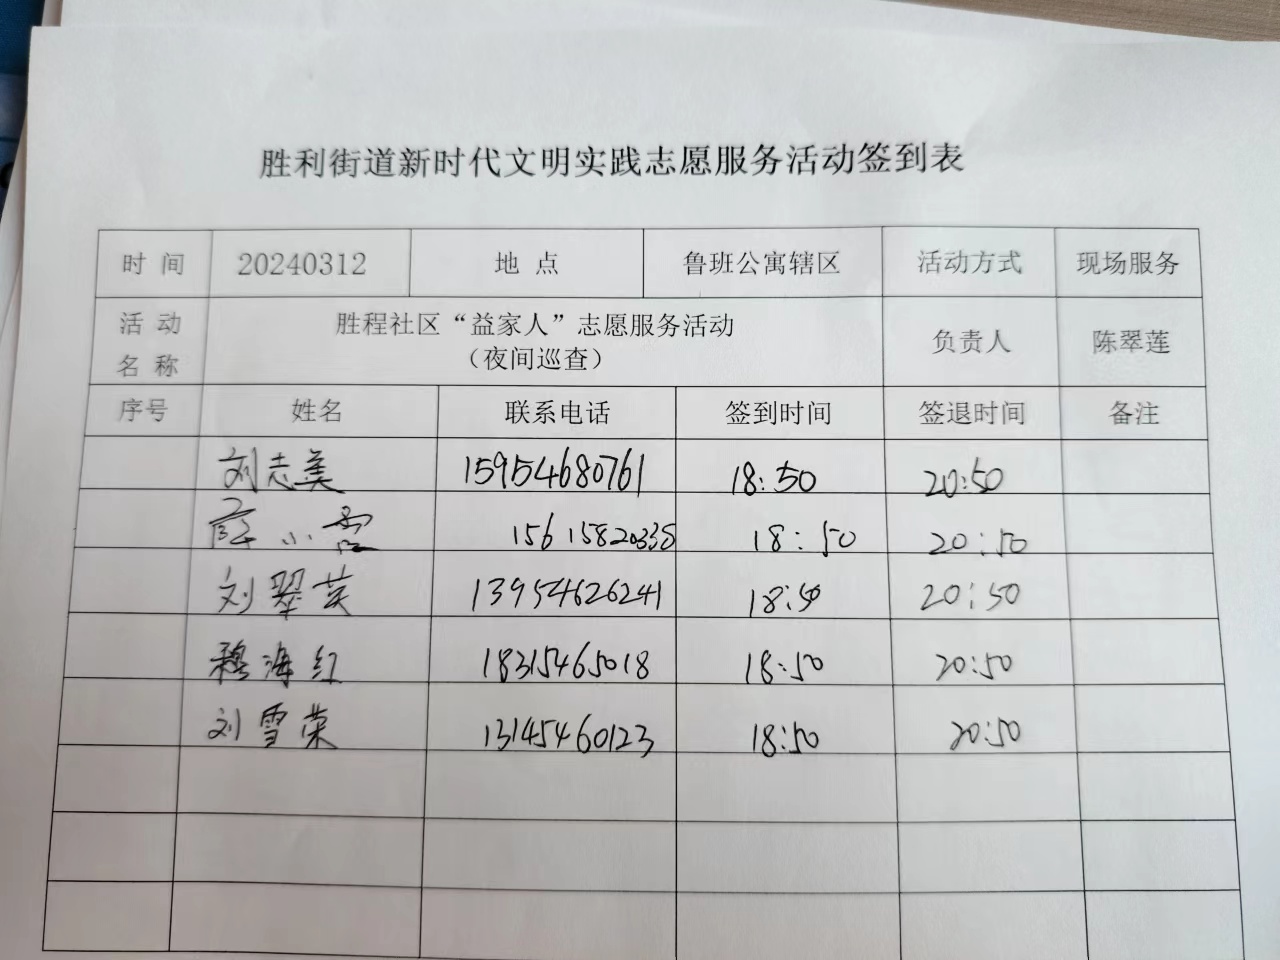 胜利街道新时代文明实践志愿服务活动签到表
时 间 20240312 地 点 鲁班公寓辖区 活动方式 现场服务
活 动 名 称 胜程社区“益家人”志愿服务活动 负责人 陈翠莲
（夜间巡查）
序号 姓名 联系电话 签到时间 签退时间 备注
刘志美 15954680761 18:50 20:50
薛小雪 18:50 20:50
刘翠英 13954626241 18:50 20:50
穆海红 18315465018 18:50 20:50
刘雪荣 13145460123 18:50 20:50